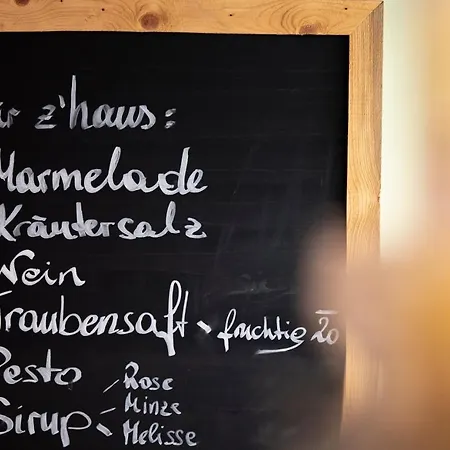 z'haus:
Marmelade
Kräutersalz
Wein
Traubensaft - fruchtig 20
Pesto
Rose
Minze
Sirup
Melisse